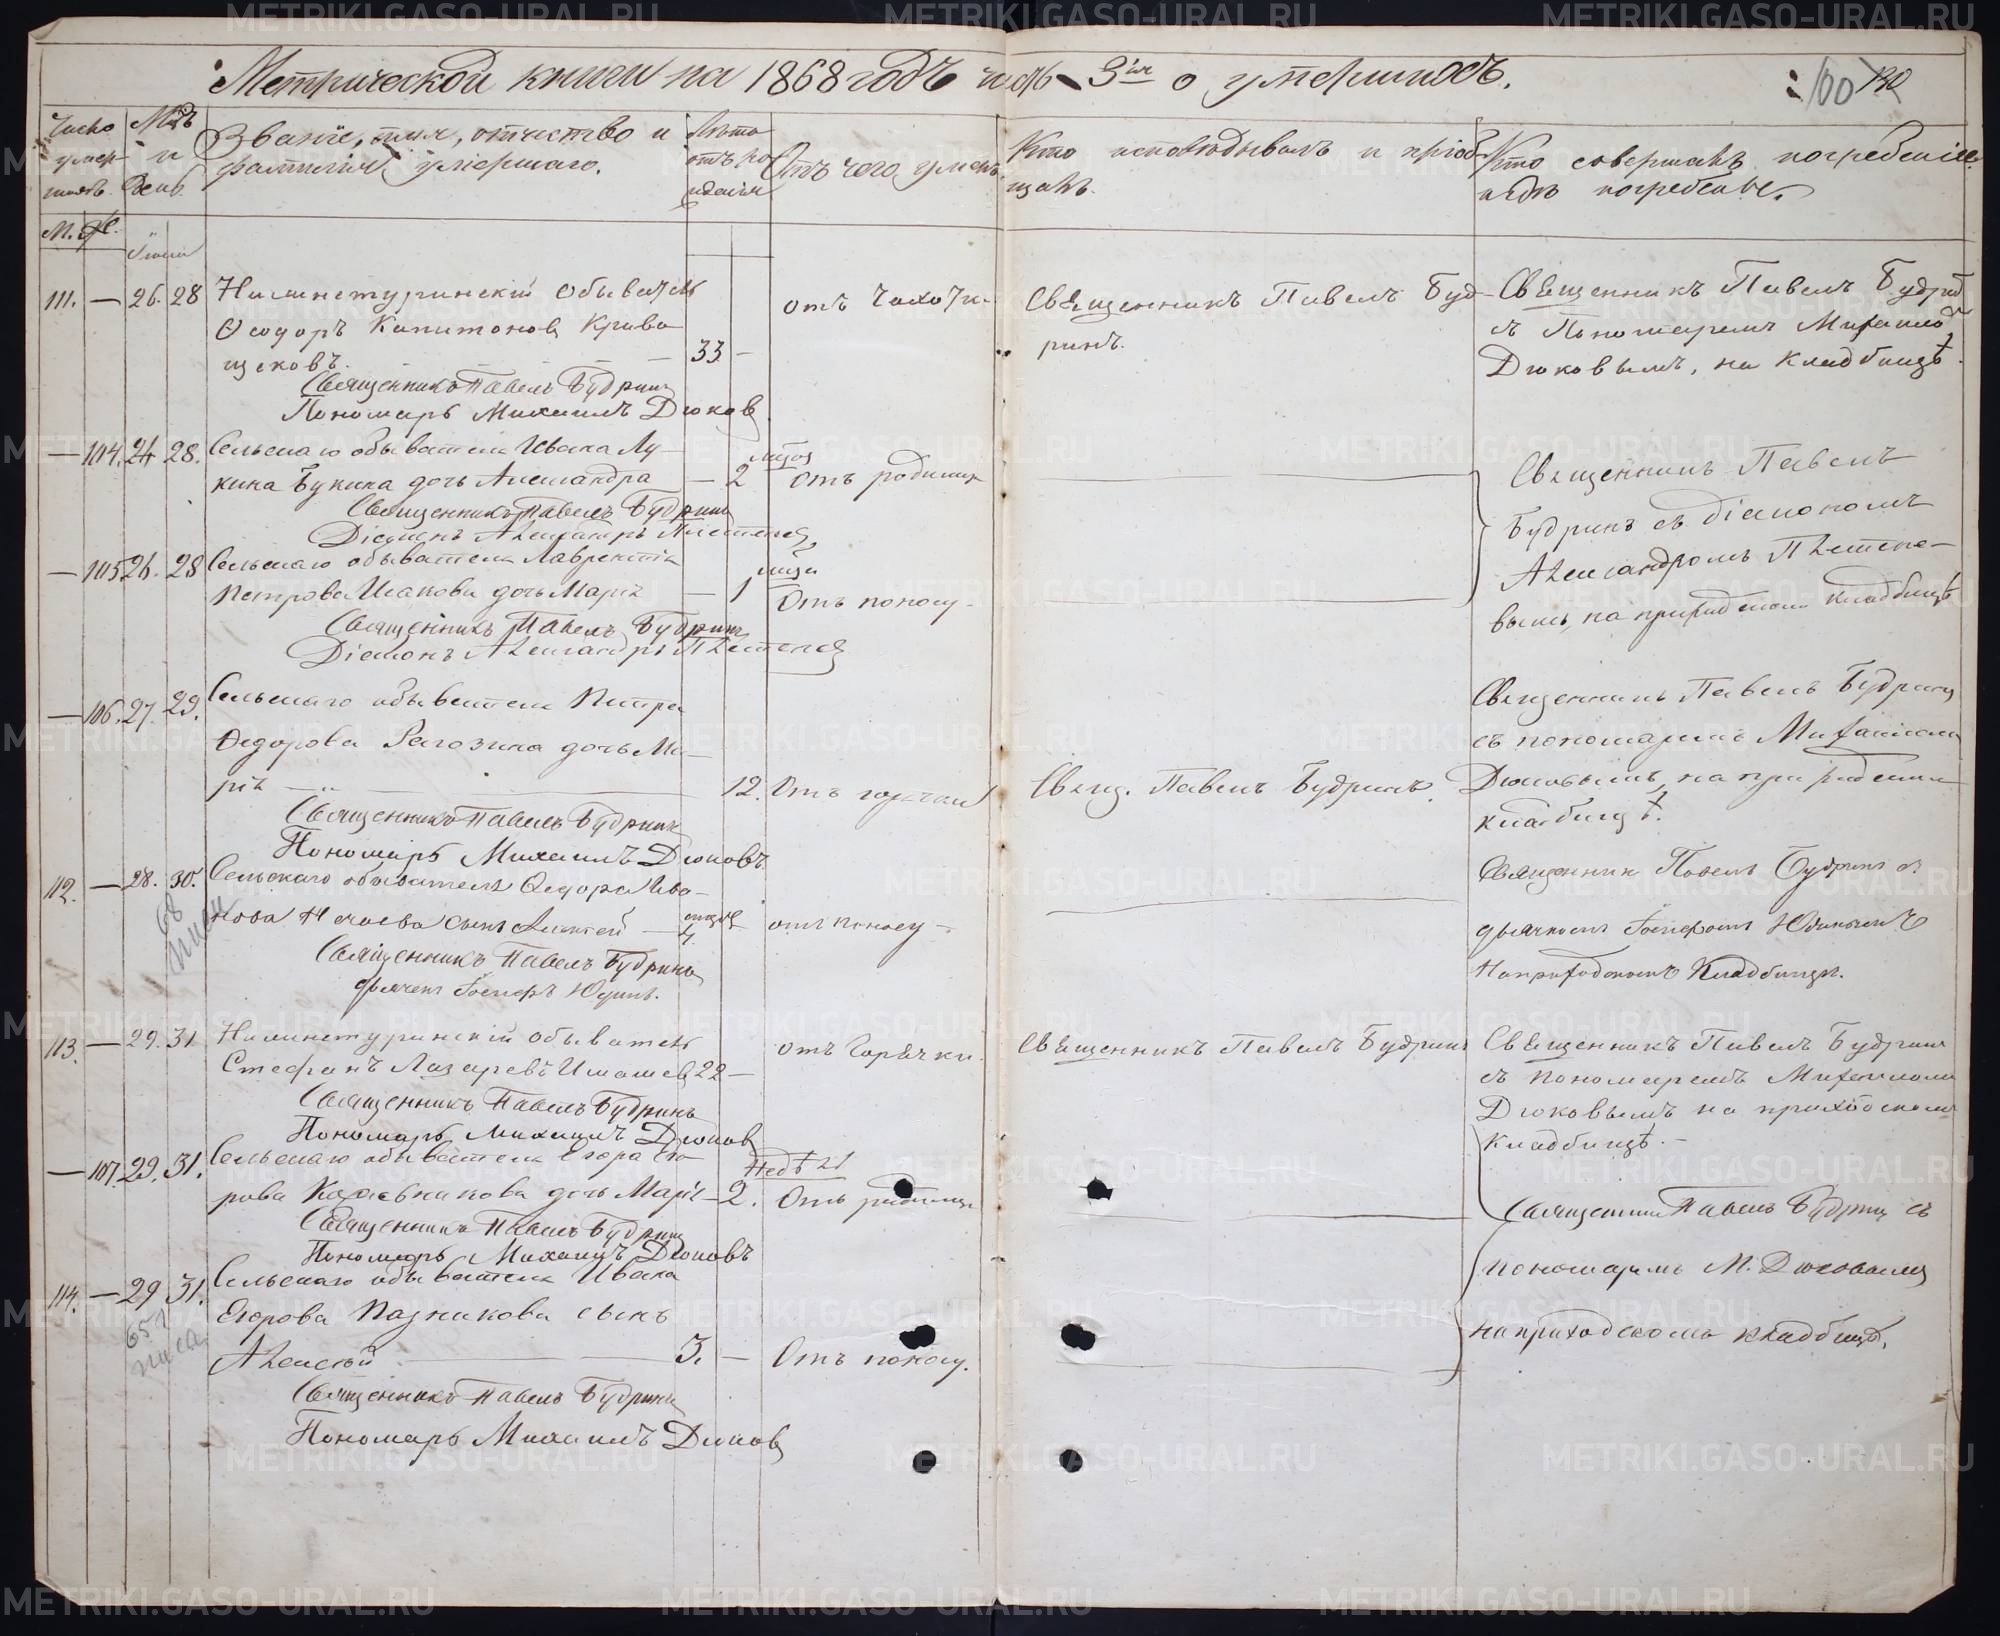 Метрической книги на 1868 годъ часть 3ия о умершихъ.
100 130
Число умершихъ.
М. Ж.
Мѣс. и День.
Званіе, имя, отчество и фамилія умершаго.
Лѣта отъ рожденія
Отъ чего умеръ.
Кто исповѣдывалъ и пріобщалъ.
Кто совершалъ погребеніе и гдѣ погребены.
111. — 26. 28 Нижнетуринскій обыватель
Ѳеодоръ Капитоновъ Криво
щековъ. — 33 —
отъ чахотки.
Священникъ Павелъ Буд-
ринъ.
Священникъ Павелъ Будринъ
съ Пономаремъ Михаиломъ
Дюковымъ, на кладбищѣ.
Священникъ Павелъ Будринъ
Пономарь Михаилъ Дюковъ
— 104. 28. Сельскаго обывателя Ивана Лу-
кина Букина дочь Александра — 2
отъ родимца
Священникъ Павелъ
Будринъ съ діакономъ
Александромъ
на приходскомъ кладбищѣ
Священникъ Павелъ Будринъ
Діаконъ Александръ
— 105 26. 28 Сельскаго обывателя Лаврентія
Петрова дочь Марія — 1
Отъ поносу.
Священникъ Павелъ Будринъ
Діаконъ Александръ
— 106. 27. 29. Сельскаго обывателя Петра
Ѳедорова Рагозина дочь Ма-
рія — 12. Отъ горячки
Свящ. Павелъ Будринъ.
Священникъ Павелъ Будринъ
съ пономаремъ Михаиломъ
Дюковымъ, на приходскомъ
кладбищѣ.
Священникъ Павелъ Будринъ
Пономарь Михаилъ Дюковъ
112. — 28. 30. Сельскаго обывателя Ѳедора Ива-
нова Нечаева сынъ Алексей — 4.
отъ поносу —
Священник Павелъ Будринъ съ
дьячкомъ Іосифомъ Юдинымъ
На приходскомъ Кладбище.
68
Священникъ Павелъ Будринъ
дьячекъ Іосифъ Юдинъ.
113. — 29. 31 Нижнетуринскій обыватель
Стефанъ Лазаревъ 22 —
отъ Горячки.
Священникъ Павелъ Будринъ
Священникъ Павелъ Будринъ
съ пономаремъ Михаиломъ
Дюковымъ на приходскомъ
кладбищѣ. —
Священникъ Павелъ Будринъ
Пономарь Михаилъ Дюковъ
— 107. 29. 31. Сельскаго обывателя Егора Его
рова дочь Марія — 2.
Недѣли
Отъ родимца
Священникъ Павелъ Будринъ съ
пономаремъ М. Дюковымъ
на приходскомъ кладбищѣ.
Священникъ Павелъ Будринъ
Пономарь Михаилъ Дюковъ
114. — 29 31. Сельскаго обывателя Ивана
Егорова Казникова сынъ
Алексѣй — 3. — Отъ поносу.
65
Священникъ Павелъ Будринъ
Пономарь Михаилъ Дюковъ
METRIKI.GASO-URAL.RU